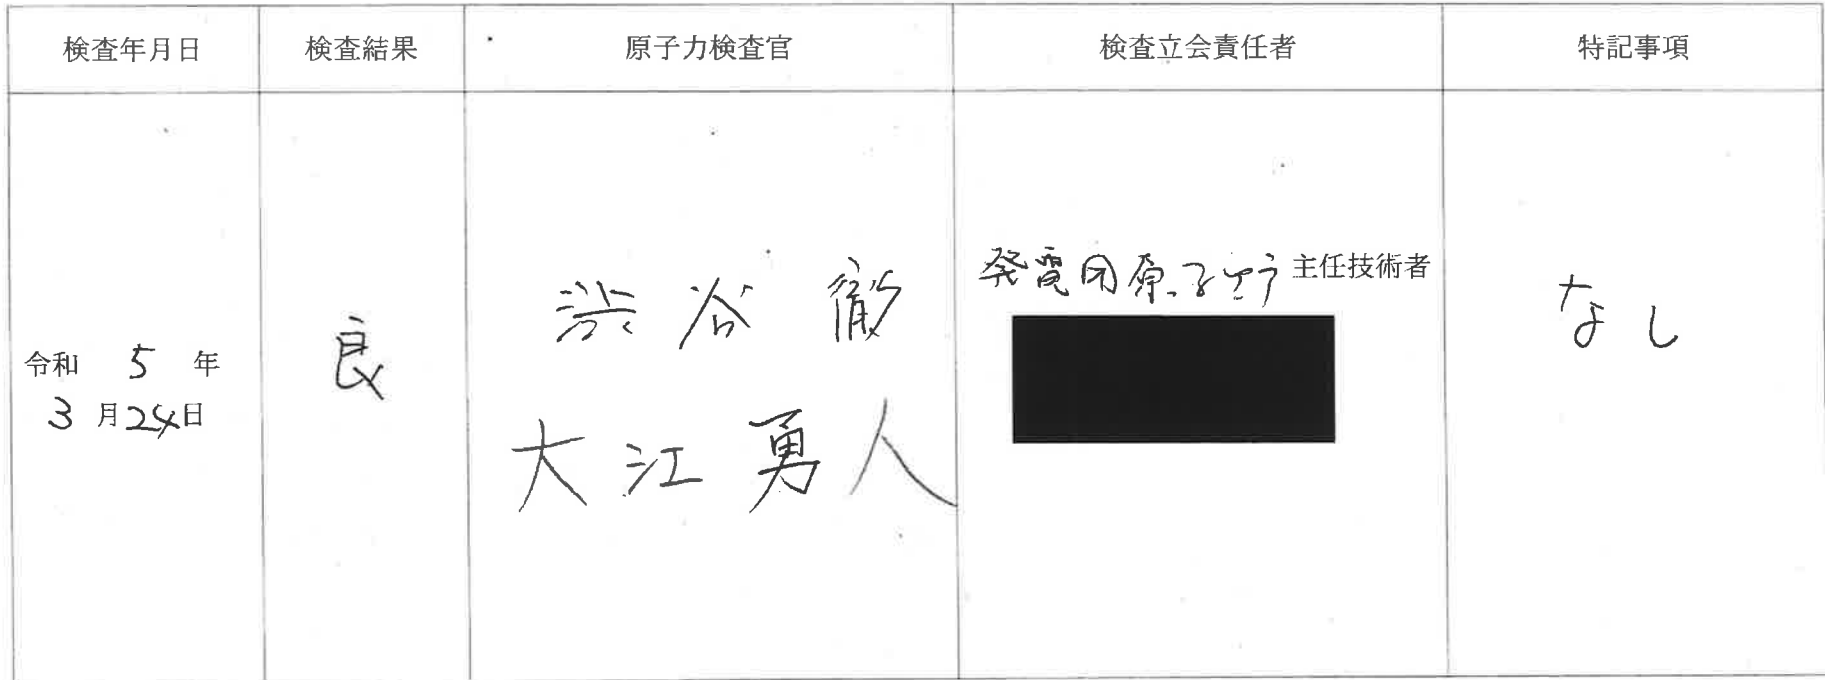 検査年月日 検査結果 原子力検査官 検査立会責任者 特記事項
令和 5 年
3 月 24 日
良
渋谷 徹
大江 勇人
発電用原子炉主任技術者
なし